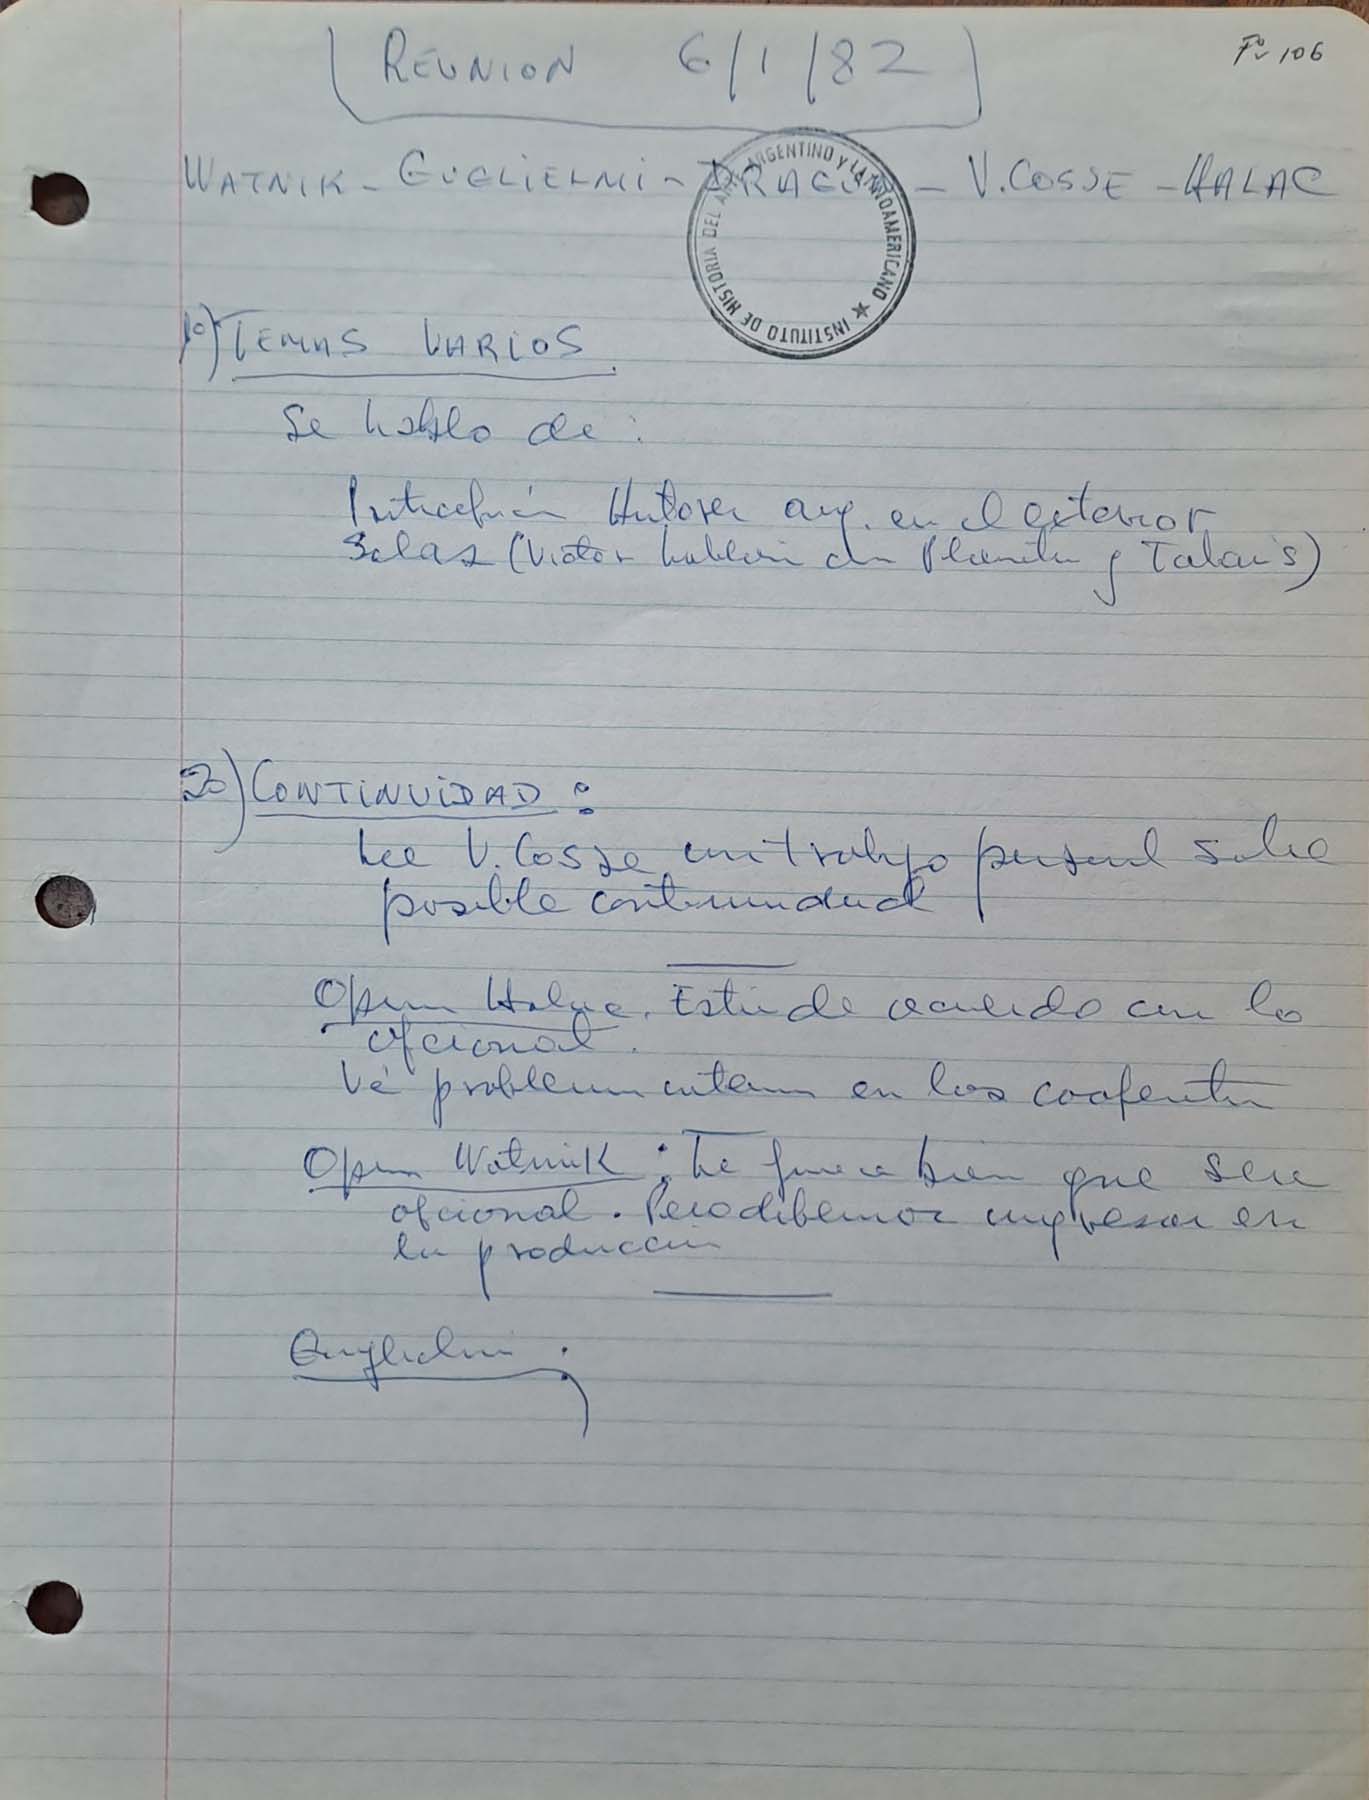 Fo 106
REUNION 6/1/82
WATNIK - GUGLIELMI - DRAGUN - V. COSSE - HALAC
INSTITUTO DE HISTORIA DEL ARTE ARGENTINO Y LATINOAMERICANO ★
1o) TEMAS VARIOS
Se hablo de:
Autores arg. en el exterior
Salas (Victor hablará con Planeta y Talais)
2o) CONTINUIDAD:
Lee V. Cosse un trabajo personal sobre
posible continuidad
Opina Halac. Está de acuerdo con lo
opcional.
Vé problema en las
Opina Watnik: Le parece bien que sea
opcional. Pero debemos ingresar en
la produccion
Guglielmi: